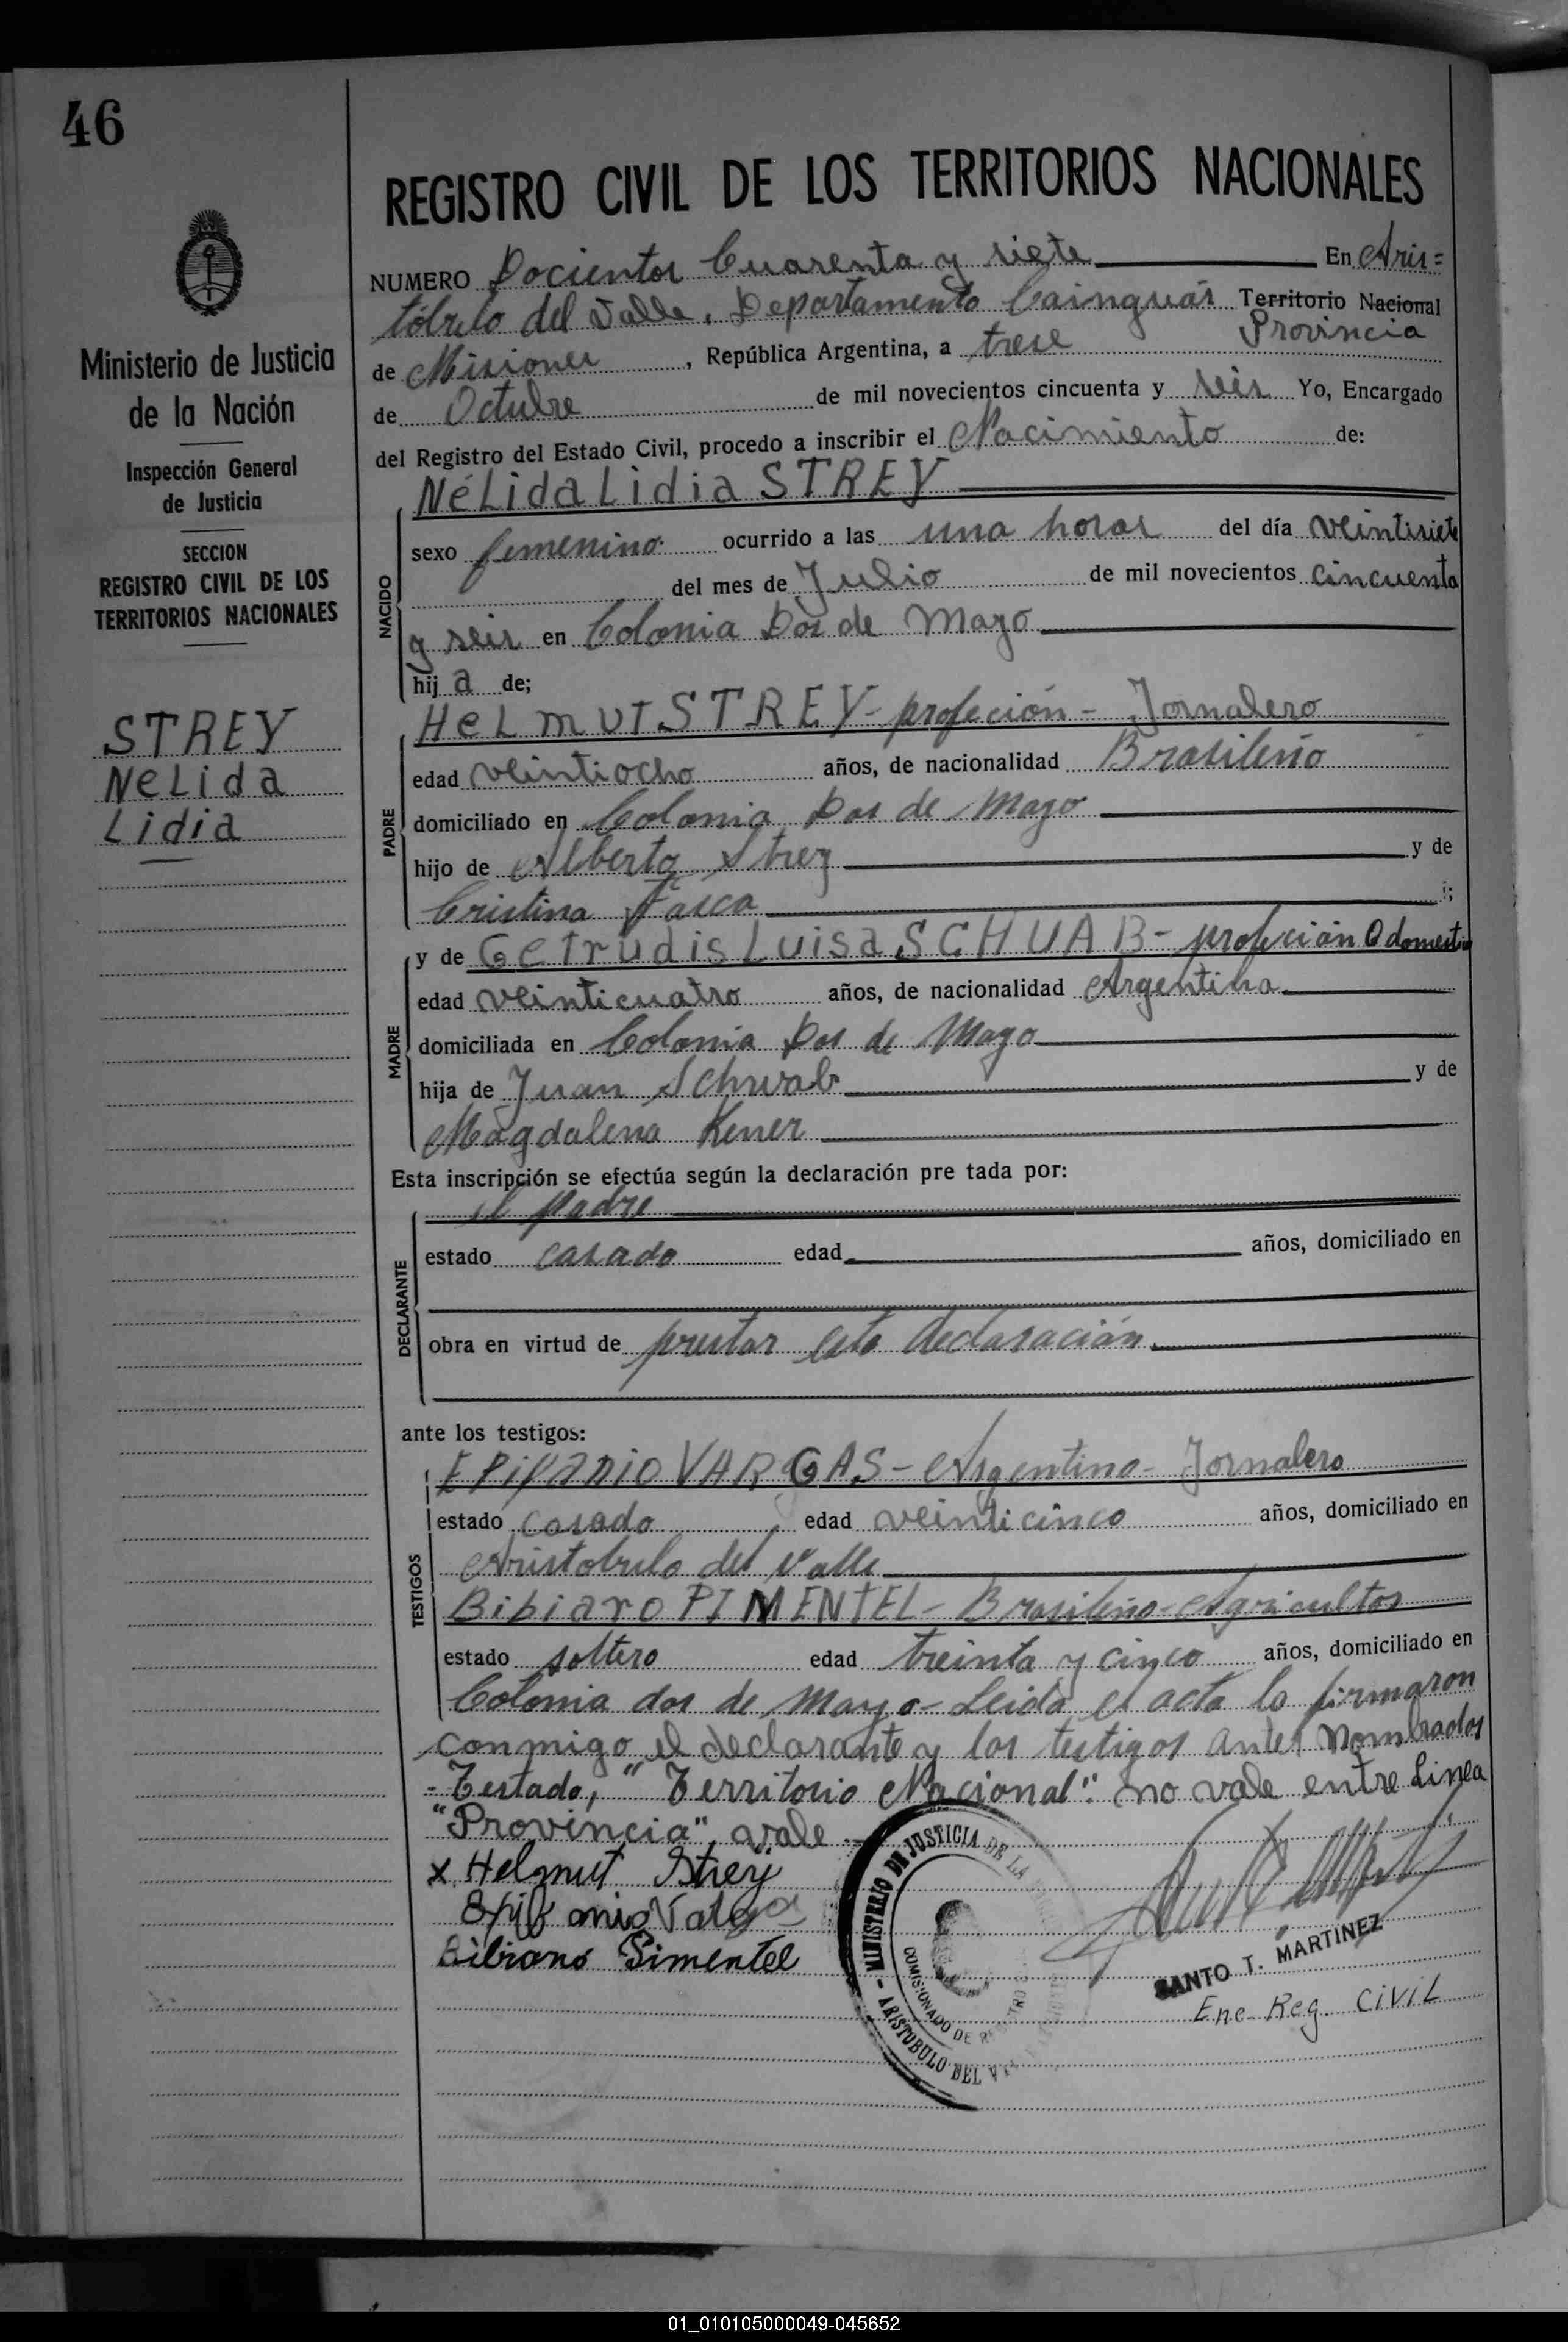 46
Ministerio de Justicia
de la Nación
Inspección General
de Justicia
SECCION
REGISTRO CIVIL DE LOS
TERRITORIOS NACIONALES
STREY
NeLida
Lidia
REGISTRO CIVIL DE LOS TERRITORIOS NACIONALES
NUMERO Docientos Cuarenta y siete En Aris=
tóbulo del Valle, Departamento Cainguás Territorio Nacional
Provincia
de Misiones, República Argentina, a trese
de Octubre de mil novecientos cincuenta y seis Yo, Encargado
del Registro del Estado Civil, procedo a inscribir el Nacimiento de:
NéLida Lidia STREY
NACIDO
sexo femenino ocurrido a las una horas del día veintisiete
del mes de Julio de mil novecientos cincuenta
y seis en Colonia Dos de Mayo
hij a de;
PADRE
HeLmut STREY - profeción - Jornalero
edad veintiocho años, de nacionalidad Brasileño
domiciliado en Colonia Dos de Mayo
hijo de Alberto Strey y de
Cristina Fasca
MADRE
y de Getrudis Luisa SCHUAB - profeción Q domestic
edad veinticuatro años, de nacionalidad Argentina
domiciliada en Colonia Dos de Mayo
hija de Juan Schwab y de
Magdalena Kener
Esta inscripción se efectúa según la declaración pre tada por:
DECLARANTE
el padre
estado casado edad años, domiciliado en
obra en virtud de prestar esta declaración.
ante los testigos:
TESTIGOS
EPifanio VARGAS - Argentino - Jornalero
estado casado edad veinticinco años, domiciliado en
Aristobulo del Valle
Bibiano PIMENTEL - Brasileño - Agricultor
estado soltero edad treinta y cinco años, domiciliado en
Colonia dos de Mayo - Leida el acta la firmaron
conmigo el declarante y los testigos antes Nombrados
- Testado, "Territorio Nacional". no vale entre Linea
"Provincia", vale.-
x Helmut Strey
Bibiano Pimentel
- MINISTERIO DE JUSTICIA DE LA
COMISIONADO DE REGISTRO
- ARISTOBULO DEL V
SANTO T. MARTINEZ
Enc Reg. CiViL
01_010105000049-045652